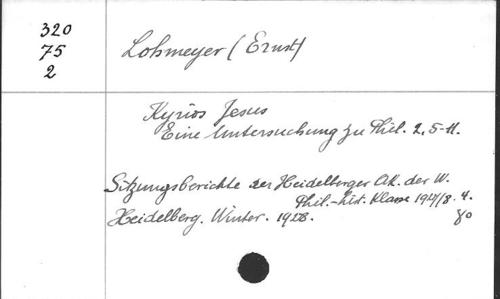 320
75
2
Lohmeyer (Ernst)
Kyrios Jesus
Eine Untersuchung zu Phil. 2, 5-11.
Sitzungsberichte der Heidelberger Ak. der W.
Phil.-hist. Klasse 1927/8. 4.
Heidelberg. Winter. 1928. 80